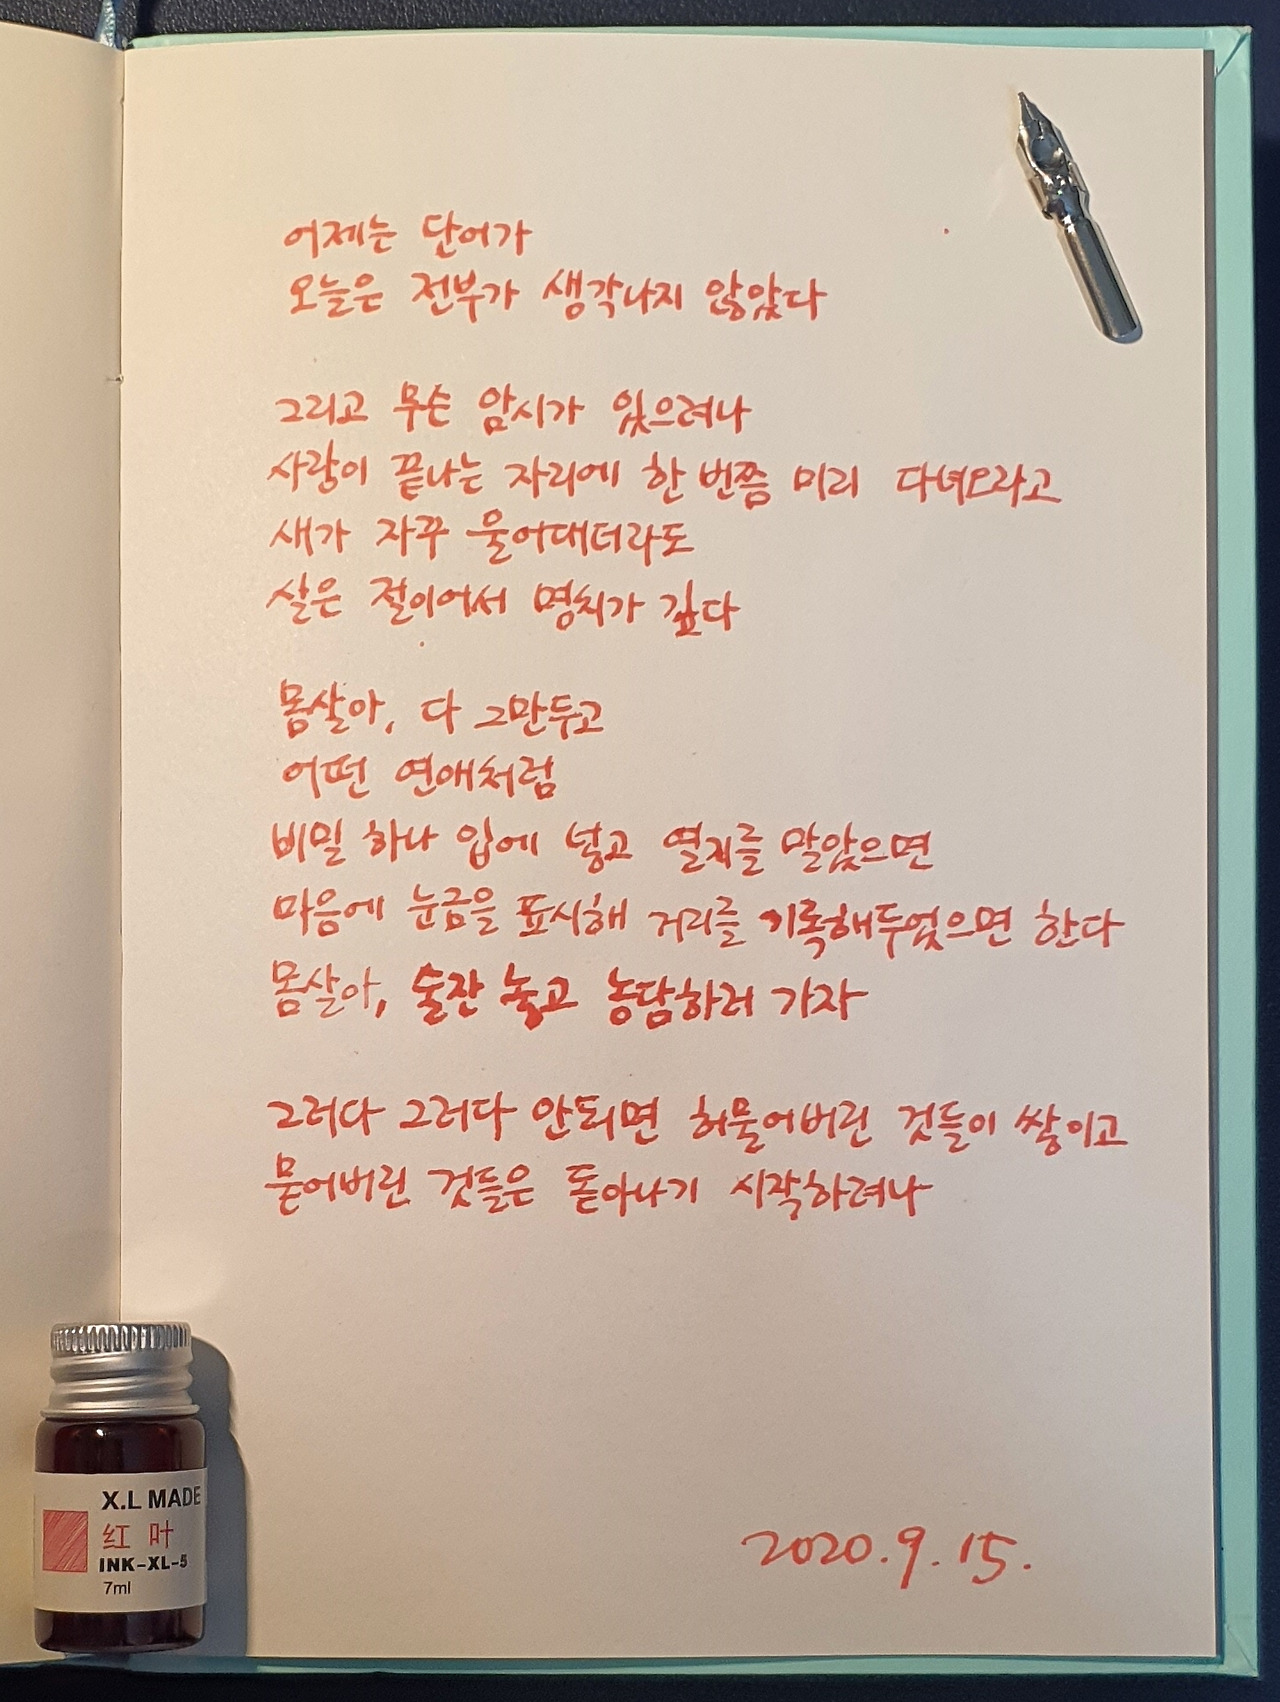 어제는 단어가
오늘은 전부가 생각나지 않았다
그리고 무슨 암시가 있으려나
사랑이 끝나는 자리에 한 번쯤 미리 다녀오라고
새가 자꾸 울어대더라도
살은 절이어서 명치가 깊다
몸살아, 다 그만두고
어떤 연애처럼
비밀 하나 입에 넣고 열지를 말았으면
마음에 눈금을 표시해 거리를 기록해두었으면 한다
몸살아, 술잔 놓고 농담하러 가자
그러다 그러다 안되면 허물어버린 것들이 쌓이고
묻어버린 것들은 돋아나기 시작하려나
2020.9.15.
X.L MADE
红叶
INK-XL-5
7ml